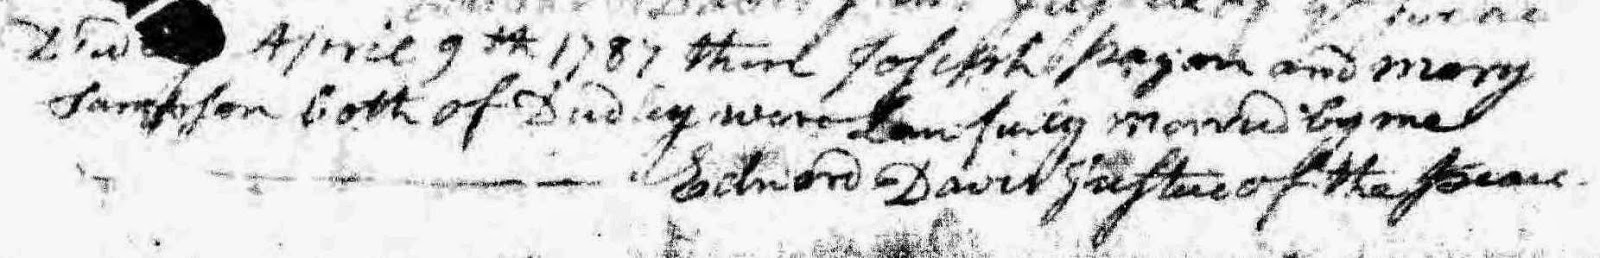 Dudley April 9th 1787 then Joseph Pagan and Mary
Sampson both of Dudley were Lawfully Married by me
Edward Davis Justice of the Peace